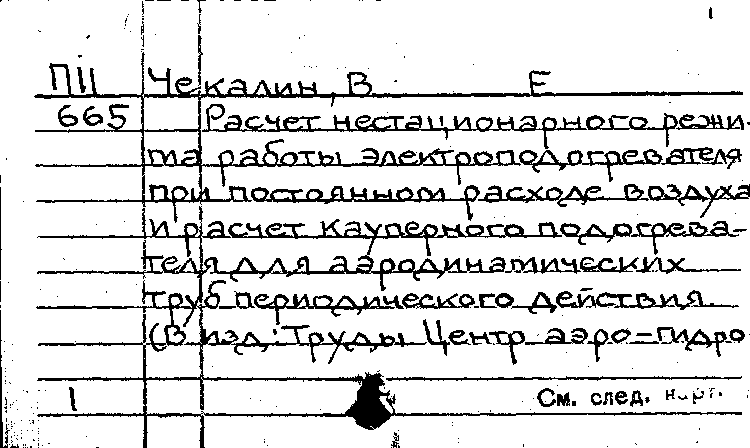 1
П11 Чекалин, В Е
665 Расчет нестационарного режи-
ма работы электроподогревателя
при постоянном расходе воздуха
и расчет кауперного подогрева-
теля для аэродинамических
труб периодического действия.
(В изд.: Труды Центр аэро-гидро
1 См. след. карт.